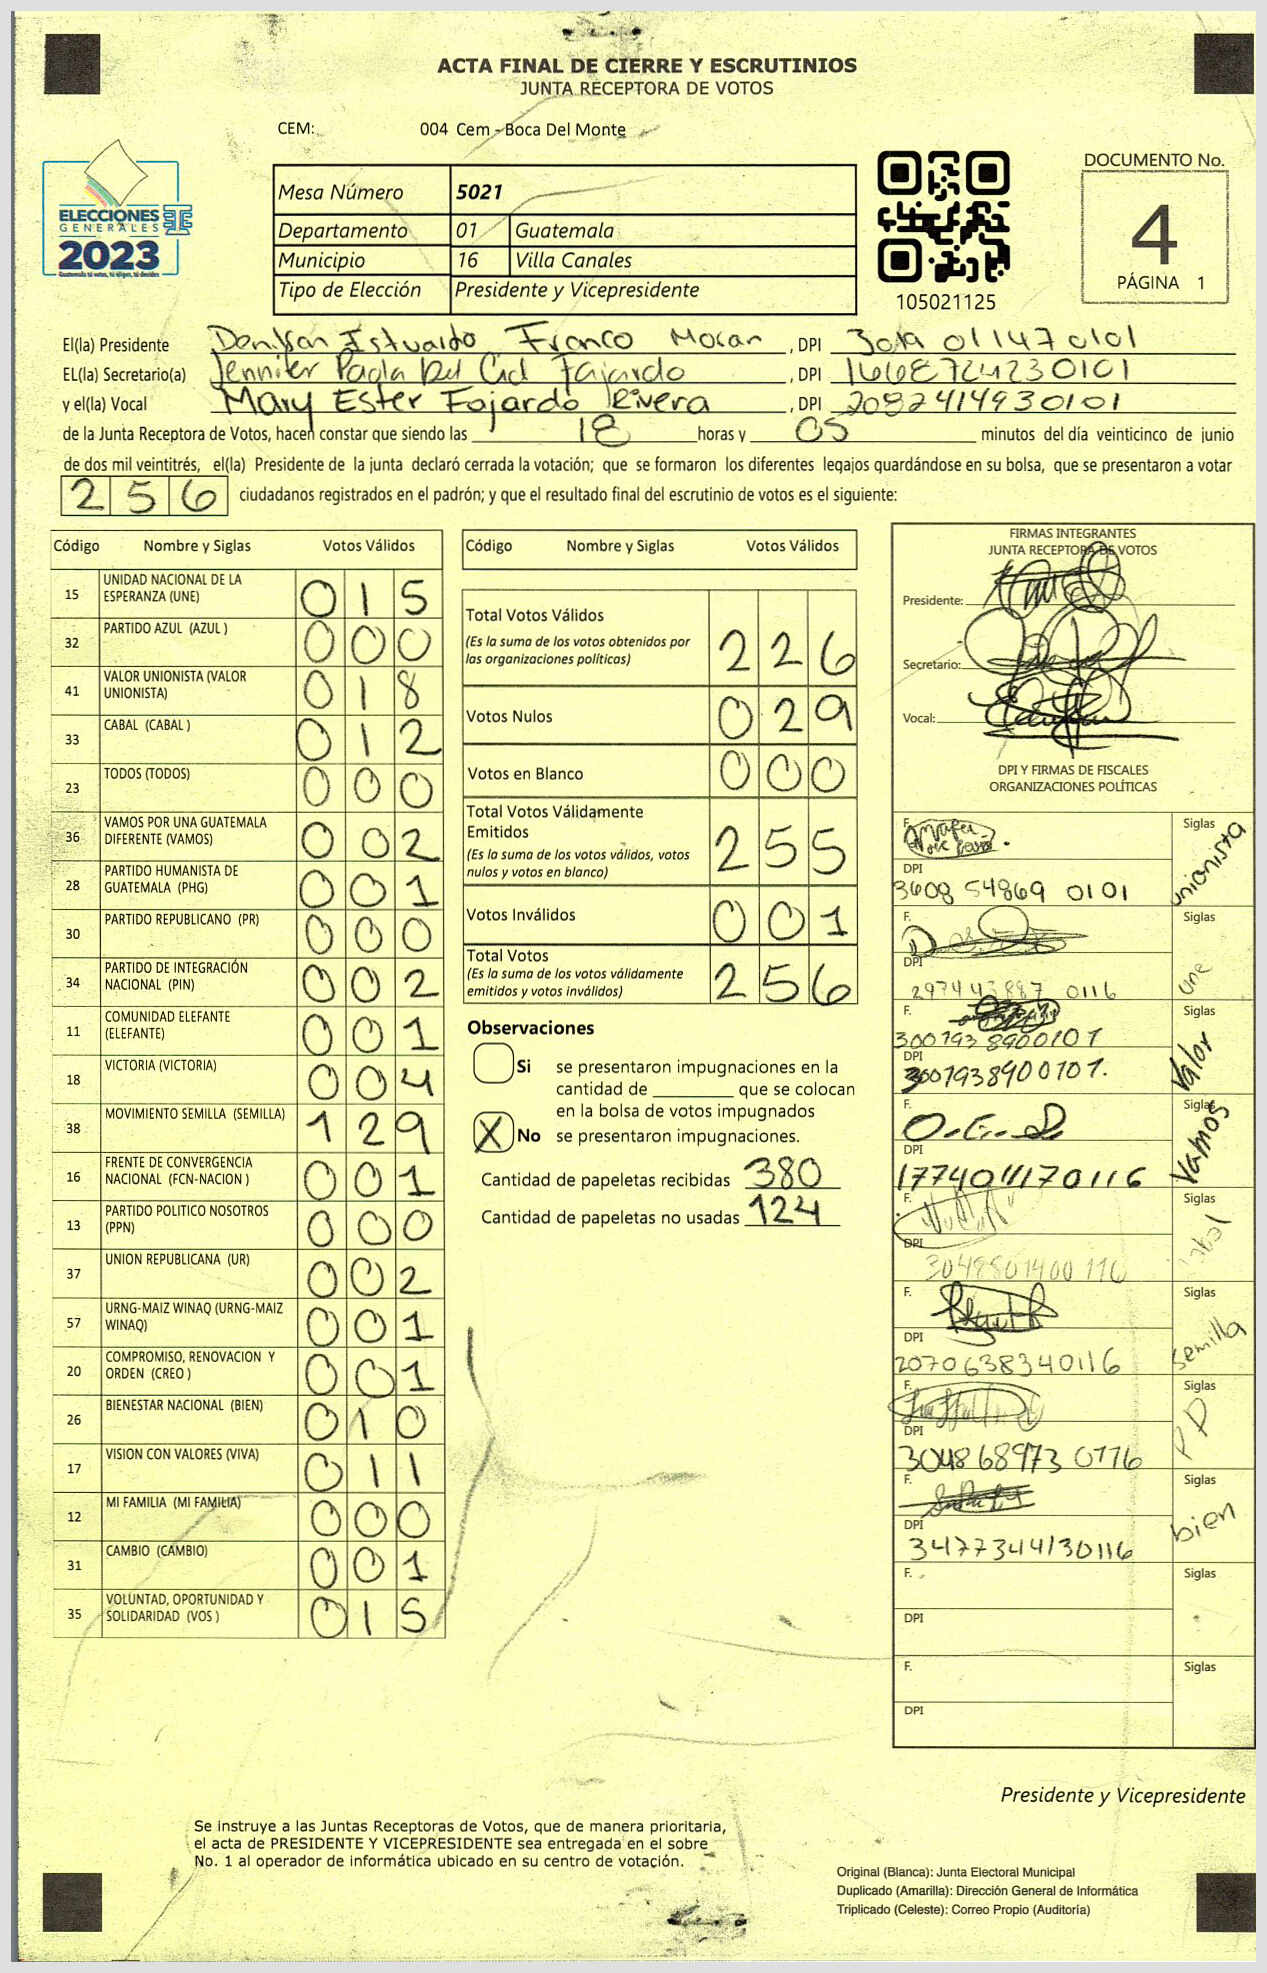 ACTA FINAL DE CIERRE Y ESCRUTINIOS
JUNTA RECEPTORA DE VOTOS
CEM: 004 Cem - Boca Del Monte
ELECCIONES
GENERALES
2023
Guatemala tú votas, tú eliges, tú decides
Mesa Número 5021
Departamento 01 Guatemala
Municipio 16 Villa Canales
Tipo de Elección Presidente y Vicepresidente
105021125
DOCUMENTO No.
4
PÁGINA 1
El(la) Presidente Denilson Estuardo Franco Moran, DPI 3019 01147 0101
EL(la) Secretario(a) Jennifer Paola Del Cid Fajardo, DPI 1668724230101
y el(la) Vocal Mary Ester Fajardo Rivera, DPI 2082414930101
de la Junta Receptora de Votos, hacen constar que siendo las 18 horas y 05 minutos del día veinticinco de junio
de dos mil veintitrés, el(la) Presidente de la junta declaró cerrada la votación; que se formaron los diferentes legajos guardándose en su bolsa, que se presentaron a votar
256 ciudadanos registrados en el padrón; y que el resultado final del escrutinio de votos es el siguiente:
Código Nombre y Siglas Votos Válidos
15 UNIDAD NACIONAL DE LA ESPERANZA (UNE) 015
32 PARTIDO AZUL (AZUL ) 000
41 VALOR UNIONISTA (VALOR UNIONISTA) 018
33 CABAL (CABAL ) 012
23 TODOS (TODOS) 000
36 VAMOS POR UNA GUATEMALA DIFERENTE (VAMOS) 002
28 PARTIDO HUMANISTA DE GUATEMALA (PHG) 001
30 PARTIDO REPUBLICANO (PR) 000
34 PARTIDO DE INTEGRACIÓN NACIONAL (PIN) 002
11 COMUNIDAD ELEFANTE (ELEFANTE) 001
18 VICTORIA (VICTORIA) 004
38 MOVIMIENTO SEMILLA (SEMILLA) 129
16 FRENTE DE CONVERGENCIA NACIONAL (FCN-NACION ) 001
13 PARTIDO POLITICO NOSOTROS (PPN) 000
37 UNION REPUBLICANA (UR) 002
57 URNG-MAIZ WINAQ (URNG-MAIZ WINAQ) 001
20 COMPROMISO, RENOVACION Y ORDEN (CREO ) 001
26 BIENESTAR NACIONAL (BIEN) 010
17 VISION CON VALORES (VIVA) 011
12 MI FAMILIA (MI FAMILIA) 000
31 CAMBIO (CAMBIO) 001
35 VOLUNTAD, OPORTUNIDAD Y SOLIDARIDAD (VOS ) 015
Código Nombre y Siglas Votos Válidos
Total Votos Válidos 226
(Es la suma de los votos obtenidos por
las organizaciones políticas)
Votos Nulos 029
Votos en Blanco 000
Total Votos Válidamente
Emitidos 255
(Es la suma de los votos válidos, votos
nulos y votos en blanco)
Votos Inválidos 001
Total Votos 256
(Es la suma de los votos válidamente
emitidos y votos inválidos)
Observaciones
Si se presentaron impugnaciones en la
cantidad de ________ que se colocan
en la bolsa de votos impugnados
X No se presentaron impugnaciones.
Cantidad de papeletas recibidas 380
Cantidad de papeletas no usadas 124
FIRMAS INTEGRANTES
JUNTA RECEPTORA DE VOTOS
Presidente:
Secretario:
Vocal:
DPI Y FIRMAS DE FISCALES
ORGANIZACIONES POLÍTICAS
F. Siglas unionista
DPI
3608 54869 0101
F. Siglas une
DPI
297443887 0116
F. Siglas Valor
3001938900101
DPI
3001938900101.
F. O.E.S. Siglas Vamos
DPI
1774011170116
F. Siglas Cabal
DPI
3048801400116
F. Siglas Semilla
DPI
2070638340116
F. Siglas PP
DPI
304868973 0116
F. Siglas bien
DPI
3477344130116
F. Siglas
DPI
F. Siglas
DPI
Presidente y Vicepresidente
Se instruye a las Juntas Receptoras de Votos, que de manera prioritaria,
el acta de PRESIDENTE Y VICEPRESIDENTE sea entregada en el sobre
No. 1 al operador de informática ubicado en su centro de votación.
Original (Blanca): Junta Electoral Municipal
Duplicado (Amarilla): Dirección General de Informática
Triplicado (Celeste): Correo Propio (Auditoría)